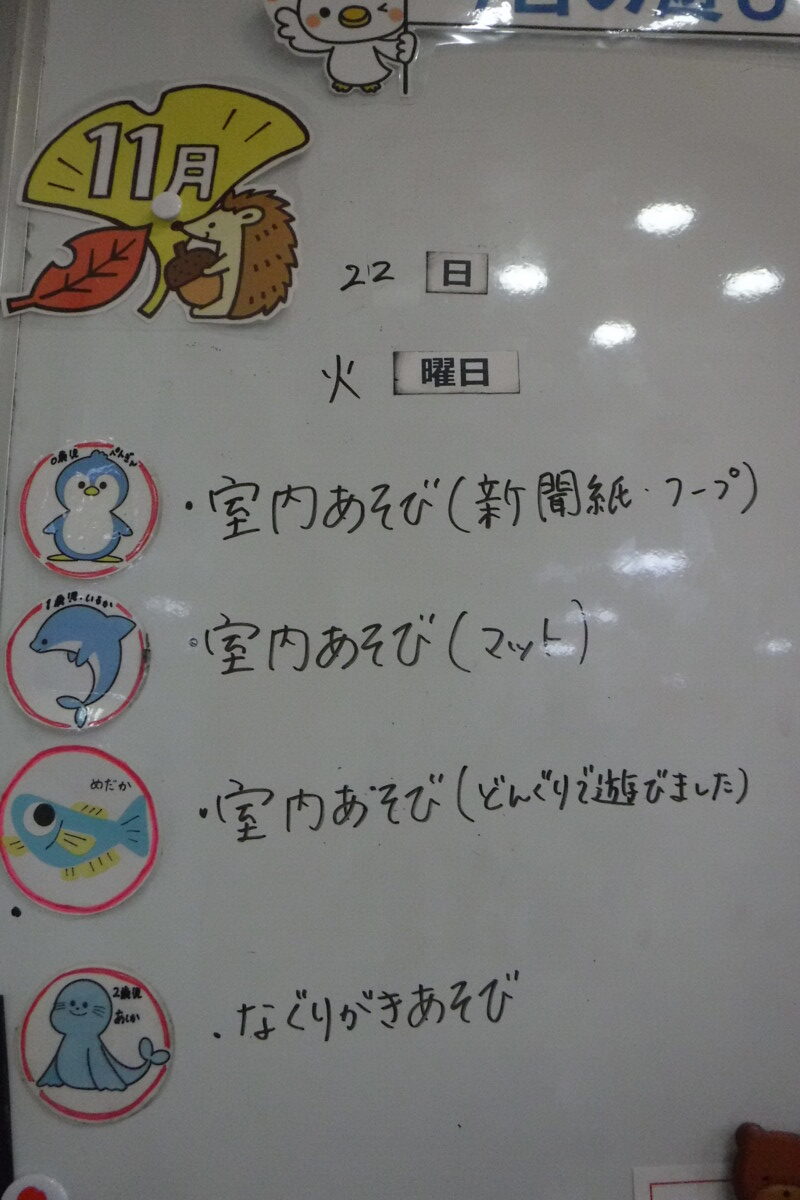 今日の遊び
11月
22 日
火 曜日
0歳児 ぺんぎん
・室内あそび(新聞紙・フープ)
1歳児・いるか
・室内あそび(マット)
めだか
・室内あそび(どんぐりで遊びました)
2歳児
あしか
・なぐりがきあそび